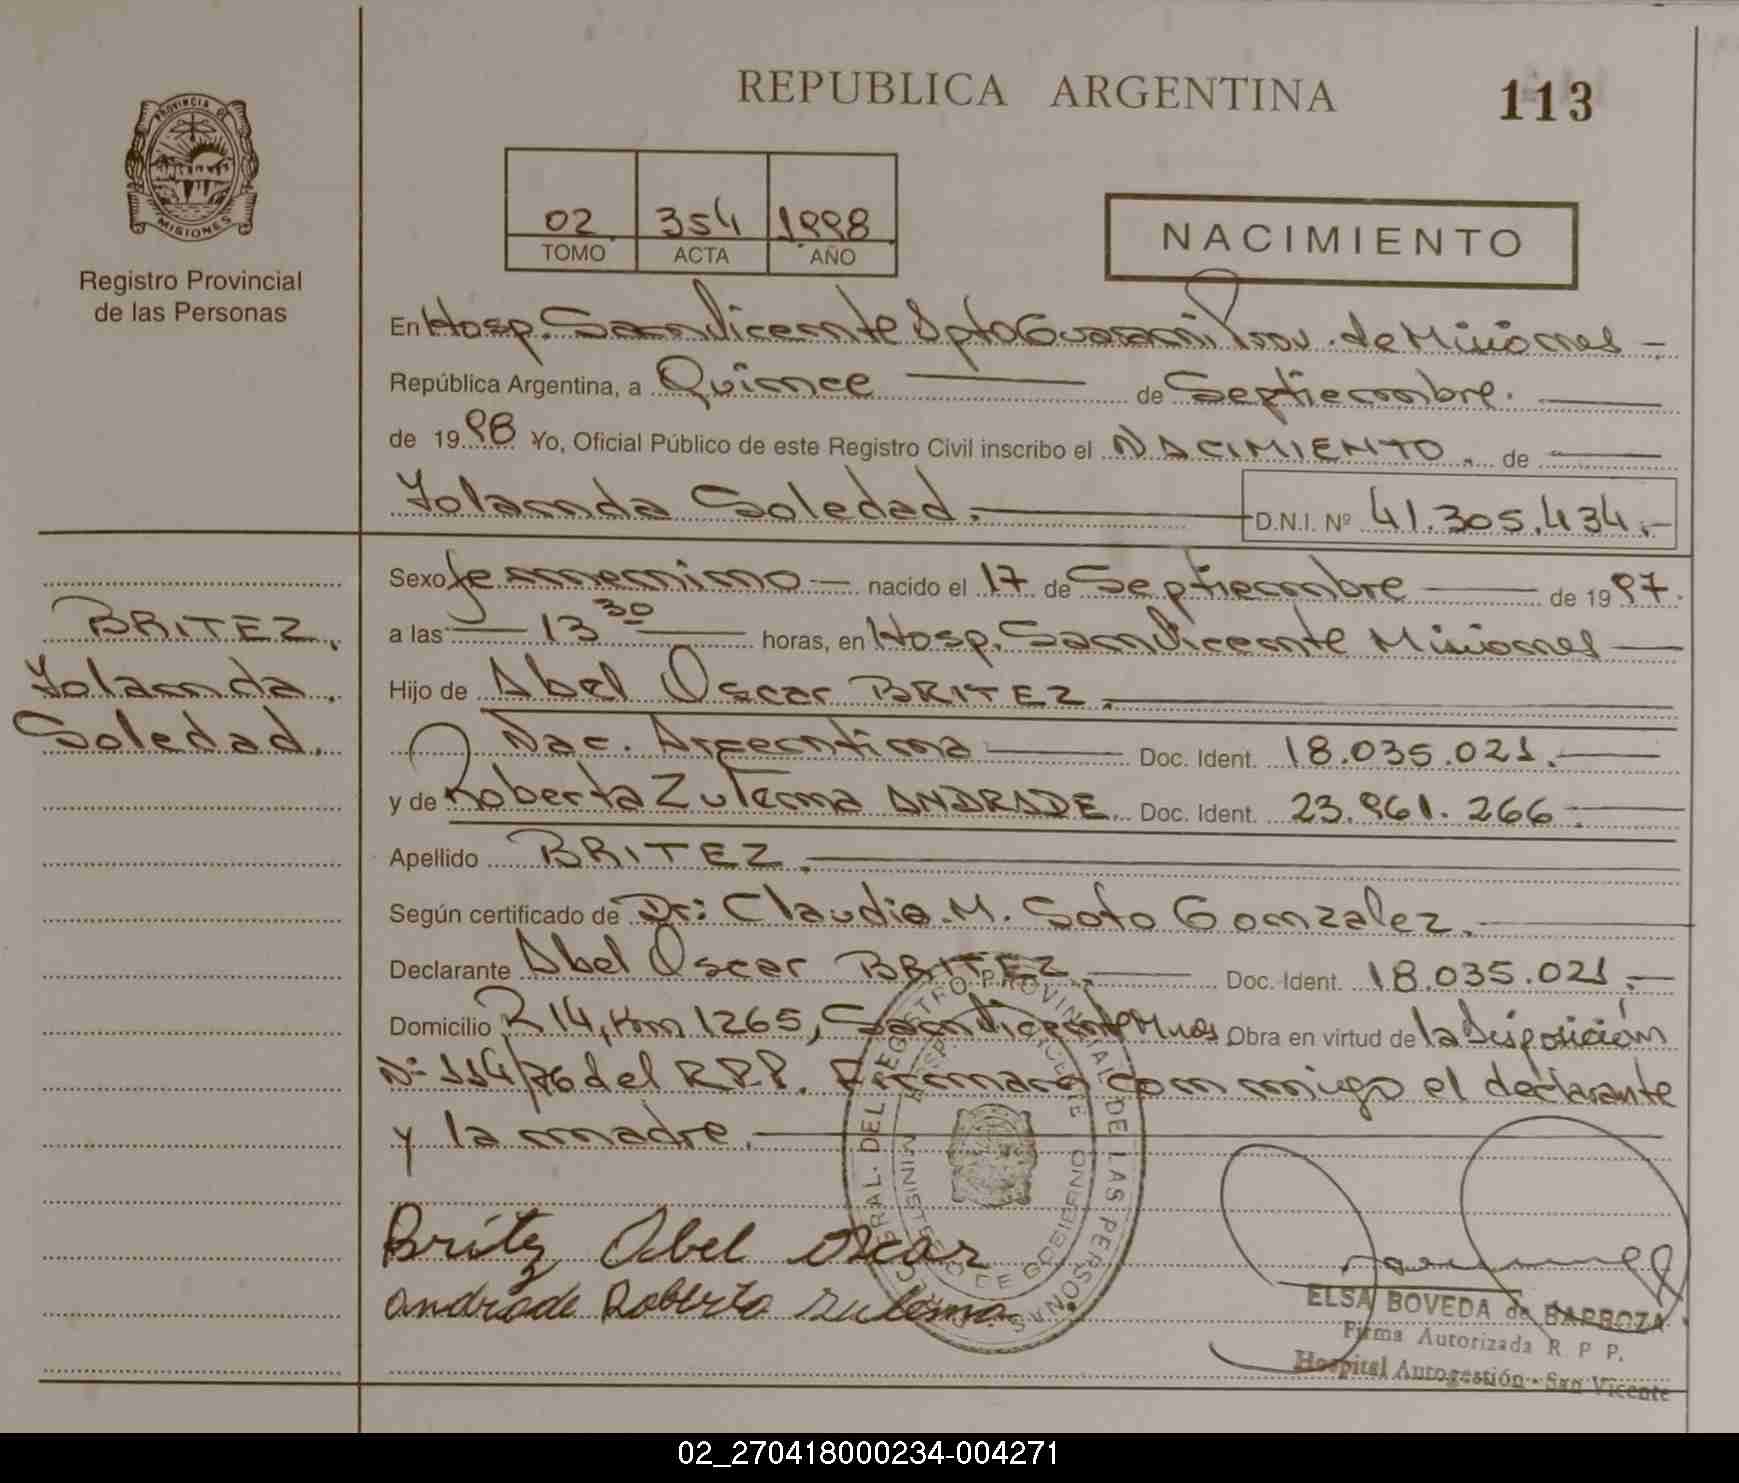 REPUBLICA ARGENTINA
113
PROVINCIA DE
MISIONES
Registro Provincial
de las Personas
02 354 1998
TOMO ACTA AÑO
NACIMIENTO
En Hosp. San Vicente Dpto Guarani Prov. de Misiones
República Argentina, a Quince de Septiembre.
de 1998 Yo, Oficial Público de este Registro Civil inscribo el NACIMIENTO. de
Yolanda Soledad. D.N.I. Nº 41.305.434.-
BRITEZ,
Yolanda
Soledad.
Sexo femenino nacido el 17 de Septiembre de 1997.
a las 13 30 horas, en Hosp. San Vicente Misiones
Hijo de Abel Oscar BRITEZ.
Nac. Argentina Doc. Ident. 18.035.021.
y de Roberta Zulema ANDRADE. Doc. Ident. 23.961.266
Apellido BRITEZ.
Según certificado de Dr: Claudio M. Soto Gonzalez.
Declarante Abel Oscar BRITEZ Doc. Ident. 18.035.021.-
Domicilio R 14, Km 1265, San Vicente Mnes Obra en virtud de la Disposición
Nº 114/76 del R.P.P. Firmara conmigo el declarante
y la madre.
REGISTRO PROVINCIAL DE LAS PERSONAS
MINISTERIO DE GOBIERNO
Britez Abel oscar
andrade Roberta zulema
ELSA BOVEDA de BARBOZA
Firma Autorizada R. P. P.
Hospital Autogestión - San Vicente
02_270418000234-004271